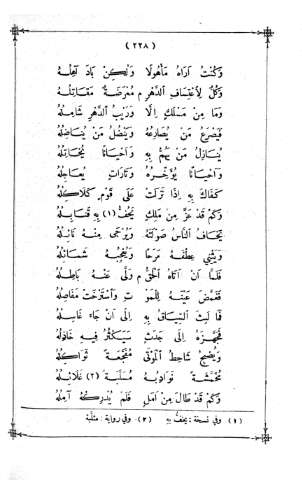 ( ٢٢٨ )
وَكُنْتُ أَرَاهُ مَأْهُولًا وَلٰكِنْ بَادَ آهِلُهُ
وَكُلٌّ لِاعْتِسَافِ الدَّهْرِ م مُعْرَضَةٌ مَقَاتِلُهُ
وَمَا مِنْ مَسْلَكٍ إِلَّا وَرَيْبُ الدَّهْرِ شَامِلُهُ
فَيَصْرَعُ مَنْ يُصَارِعُهُ وَيَنْضُلُ مَنْ يُنَاضِلُهُ
يُنَازِلُ مَنْ يَهُمُّ بِهِ وَأَحْيَانًا يُخَاتِلُهُ
وَأَحْيَانًا يُؤَخِّرُهُ وَتَارَاتٍ يُعَاجِلُهُ
كَفَاكَ بِهِ إِذَا نَزَلَتْ عَلَى قَوْمٍ كَلَاكِلُهُ
وَكَمْ قَدْ عَزَّ مِنْ مَلِكٍ يَحُفُّ (١) بِهِ قَنَابِلُهُ
يَخَافُ النَّاسُ صَوْلَتَهُ وَيُرْجَى مِنْهُ نَائِلُهُ
وَيَثْنِي عِطْفَهُ مَرَحًا وَتُعْجِبُهُ شَمَائِلُهُ
فَلَمَّا أَنْ أَتَاهُ الْحَقُّ م وَلَّى عَنْهُ بَاطِلُهُ
فَغَمَّضَ عَيْنَهُ لِلْمَوْ تِ وَاسْتَرْخَتْ مَفَاصِلُهُ
فَمَا لَبِثَ السِّيَاقُ بِهِ إِلَى أَنْ جَاءَ غَاسِلُهُ
فَجَهَّزَهُ إِلَى جَدَثٍ سَيَكْثُرُ فِيهِ خَاذِلُهُ
وَيُصْبِحُ شَاحِطَ الْمَثْوَى مُفَجَّعَةً ثَوَاكِلُهُ
مُخَمَّشَةً نَوَادِبُهُ مُسَلَّبَةً (٢) غَلَائِلُهُ
وَكَمْ قَدْ طَالَ مِنْ أَمَلٍ فَلَمْ يُدْرِكْهُ آمِلُهُ
(١) وفي نسخة : يحفّ به (٢) وفي رواية :